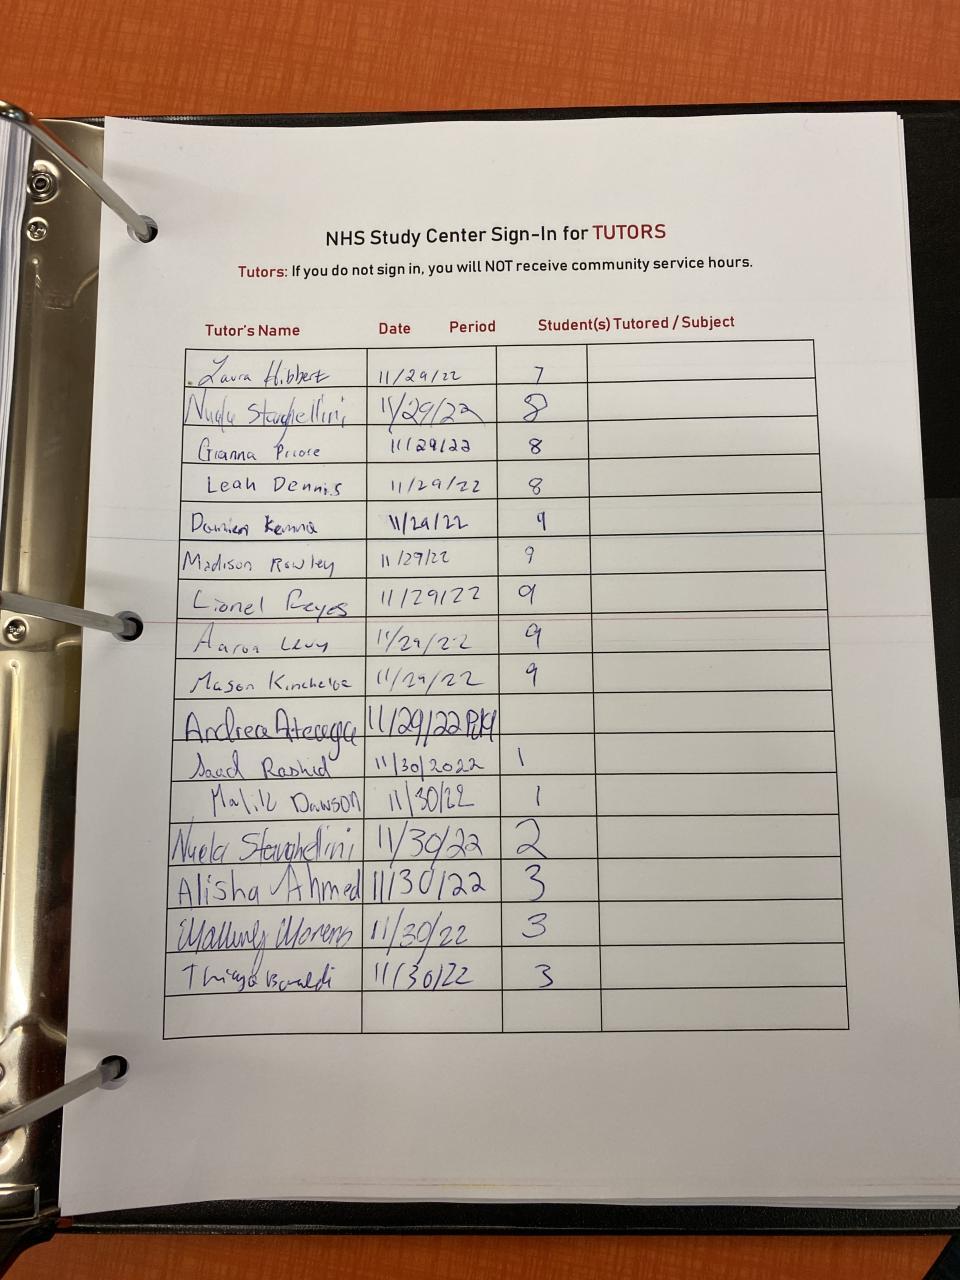 NHS Study Center Sign-In for TUTORS
Tutors: If you do not sign in, you will NOT receive community service hours.
Tutor's Name Date Period Student(s) Tutored / Subject
Laura Hibbert 11/29/22 7
Nuela Stavghellini 11/29/22 8
Gianna Priore 11/29/22 8
Leah Dennis 11/29/22 8
Damien 11/29/22 9
Madison Rowley 11/29/22 9
Lionel Reyes 11/29/22 9
Aaron Levy 11/29/22 9
Mason Kincheloe 11/29/22 9
Andrea 11/29/22
Saad Rashid 11/30/2022 1
Malik Dawson 11/30/22 1
Nuela Stavghellini 11/30/22 2
Alisha Ahmed 11/30/22 3
Moreno 11/30/22 3
Thiago 11/30/22 3